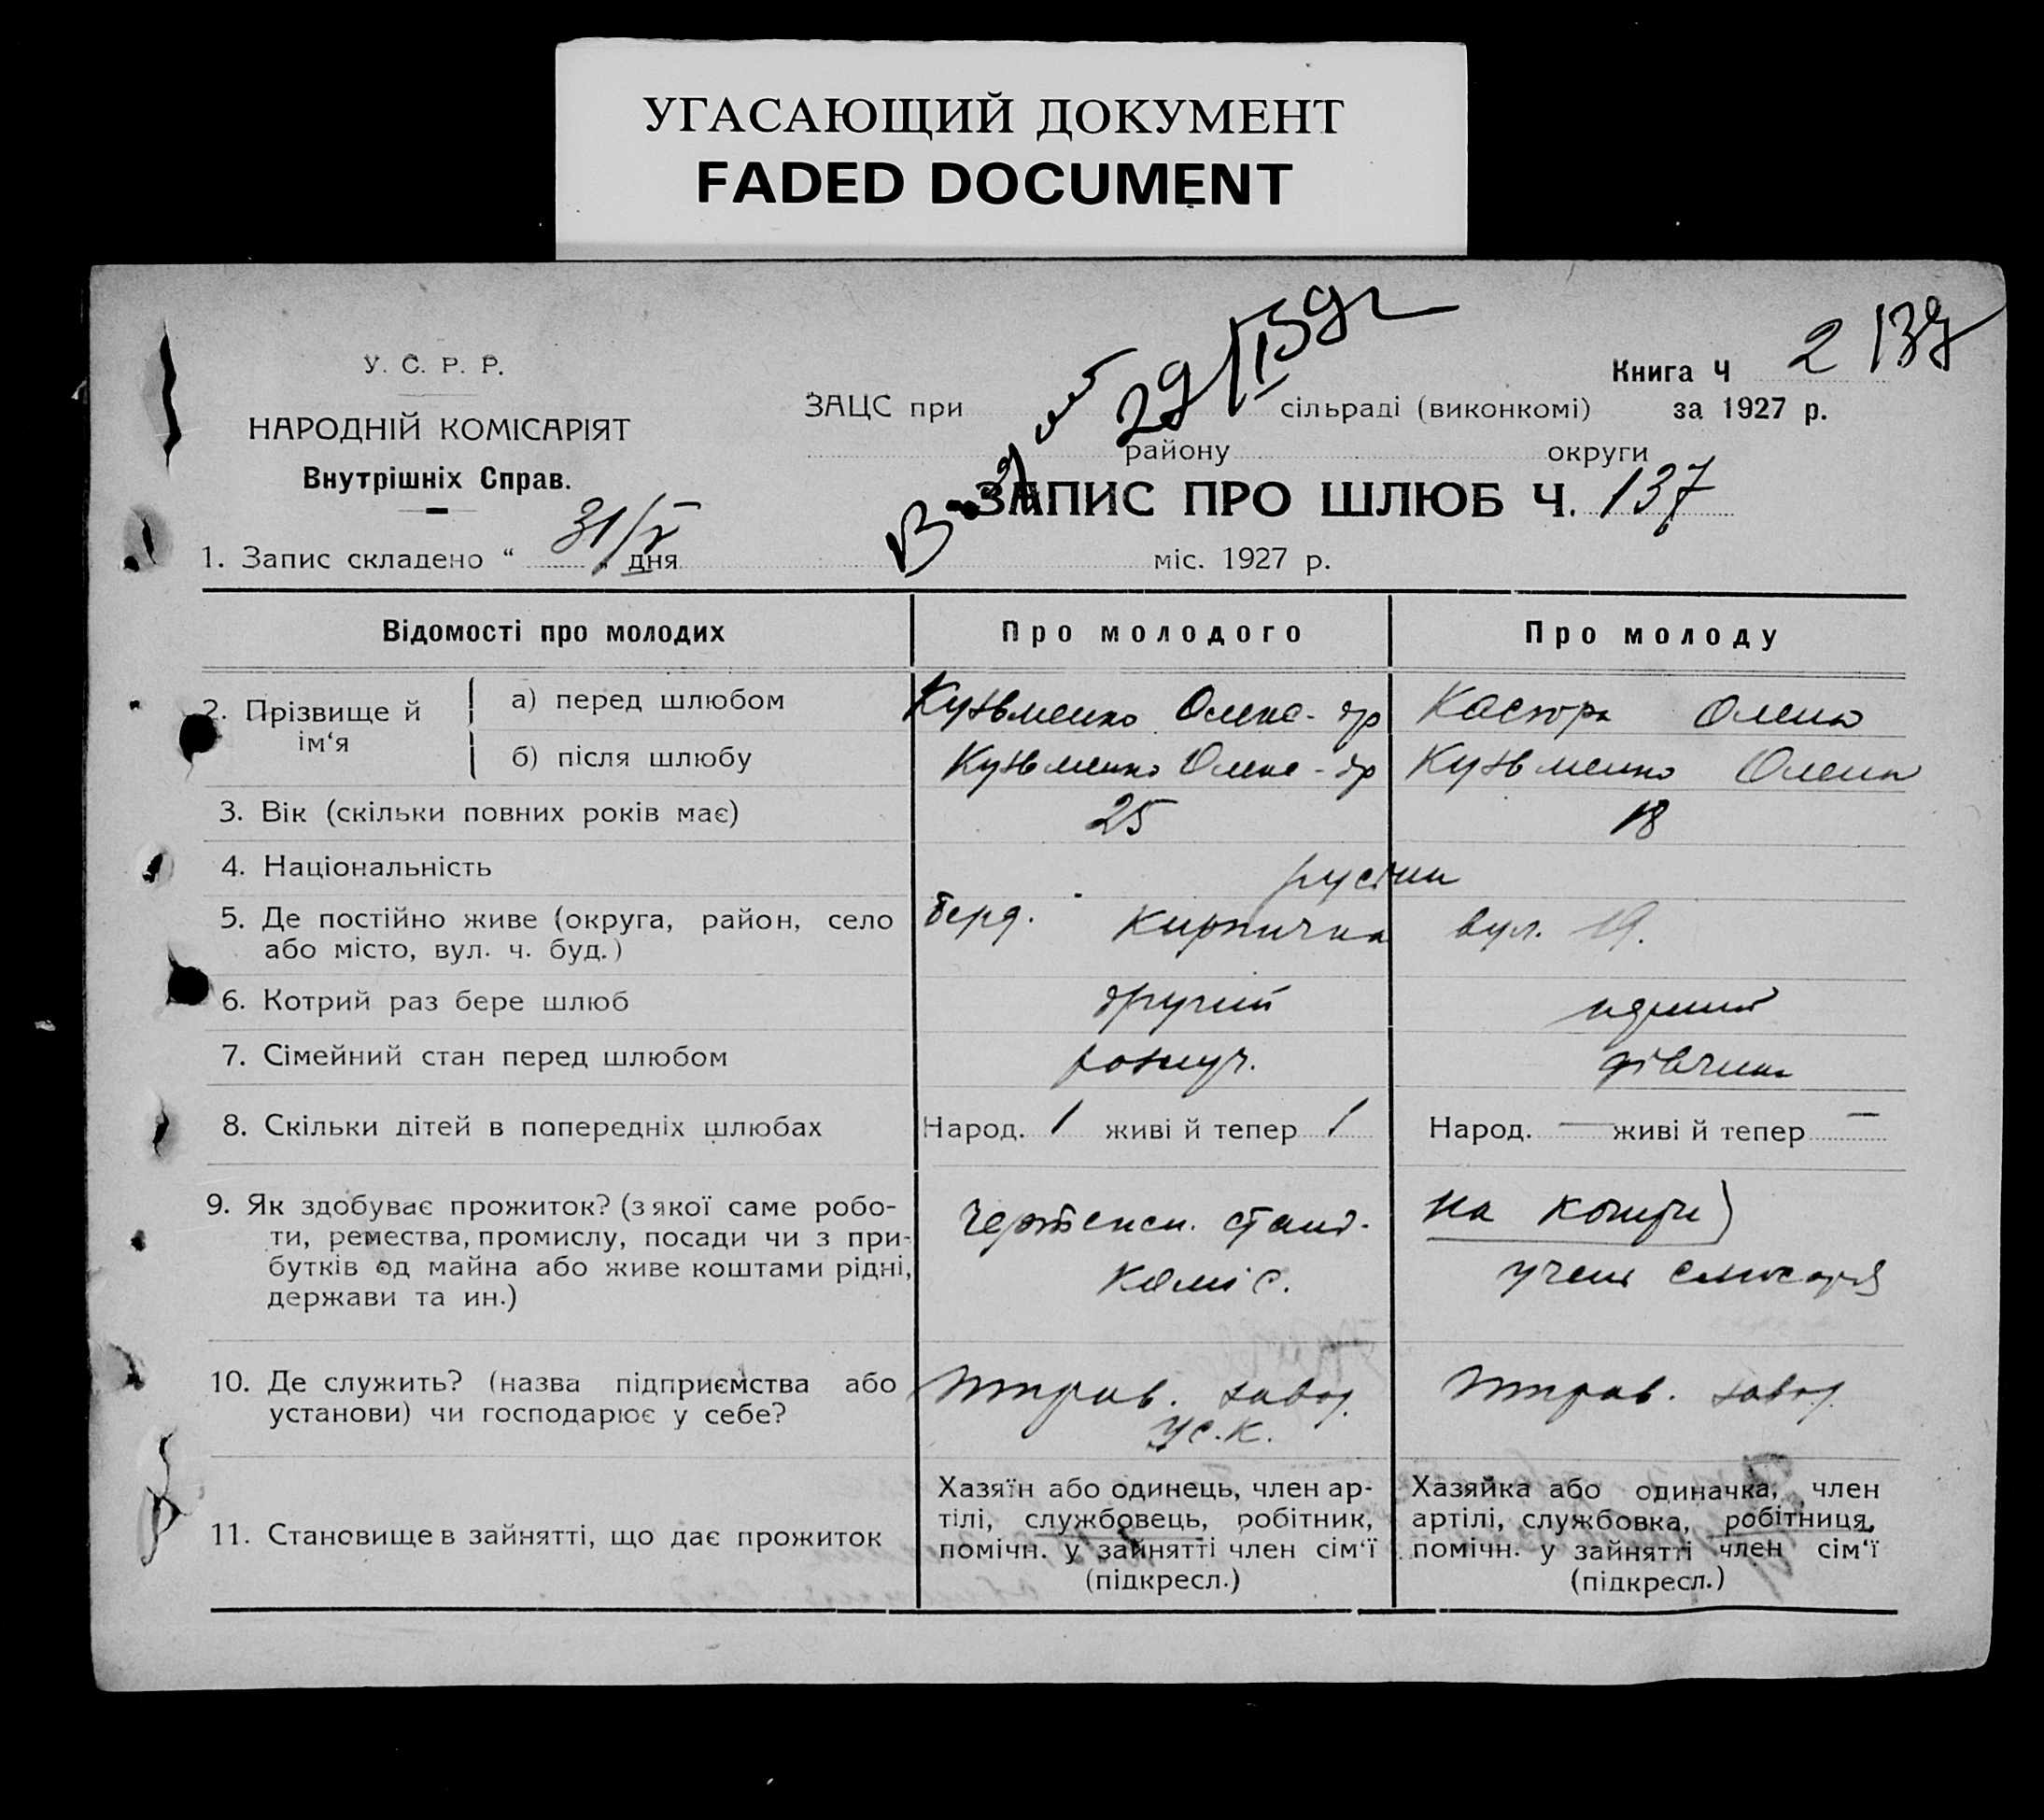 УГАСАЮЩИЙ ДОКУМЕНТ
FADED DOCUMENT
У. С. Р. Р.
НАРОДНІЙ КОМІСАРІЯТ
Внутрішніх Справ.
29/I 39 г
2 139
Книга Ч
ЗАЦС при сільраді (виконкомі) за 1927 р.
району округи
ЗАПИС ПРО ШЛЮБ Ч. 137
1. Запис складено “ 31/V „ дня міс. 1927 р.
Відомості про молодих Про молодого Про молоду
2. Прізвище й ім‘я
а) перед шлюбом Кузьменко Олекс-др Кастра Олена
б) після шлюбу Кузьменко Олекс-др Кузьменко Олена
3. Вік (скільки повних років має) 25 18
4. Національність
5. Де постійно живе (округа, район, село Берд. Кирпична вул. 19.
або місто, вул. ч. буд.)
6. Котрий раз бере шлюб другий
7. Сімейний стан перед шлюбом розлуч. дівчина
8. Скільки дітей в попередніх шлюбах Народ. 1 живі й тепер 1 Народ. — живі й тепер —
9. Як здобуває прожиток? (з якої саме робо-
ти, ремества, промислу, посади чи з при-
бутків од майна або живе коштами рідні,
держави та ин.)
на
учень слюсаря
10. Де служить? (назва підприємства або
установи) чи господарює у себе?
завод.
У.С.К.
завод.
11. Становище в зайнятті, що дає прожиток
Хазяїн або одинець, член ар-
тілі, службовець, робітник,
помічн. у зайнятті член сім‘ї
(підкресл.)
Хазяйка або одиначка, член
артілі, службовка, робітниця,
помічн. у зайнятті член сім‘ї
(підкресл.)